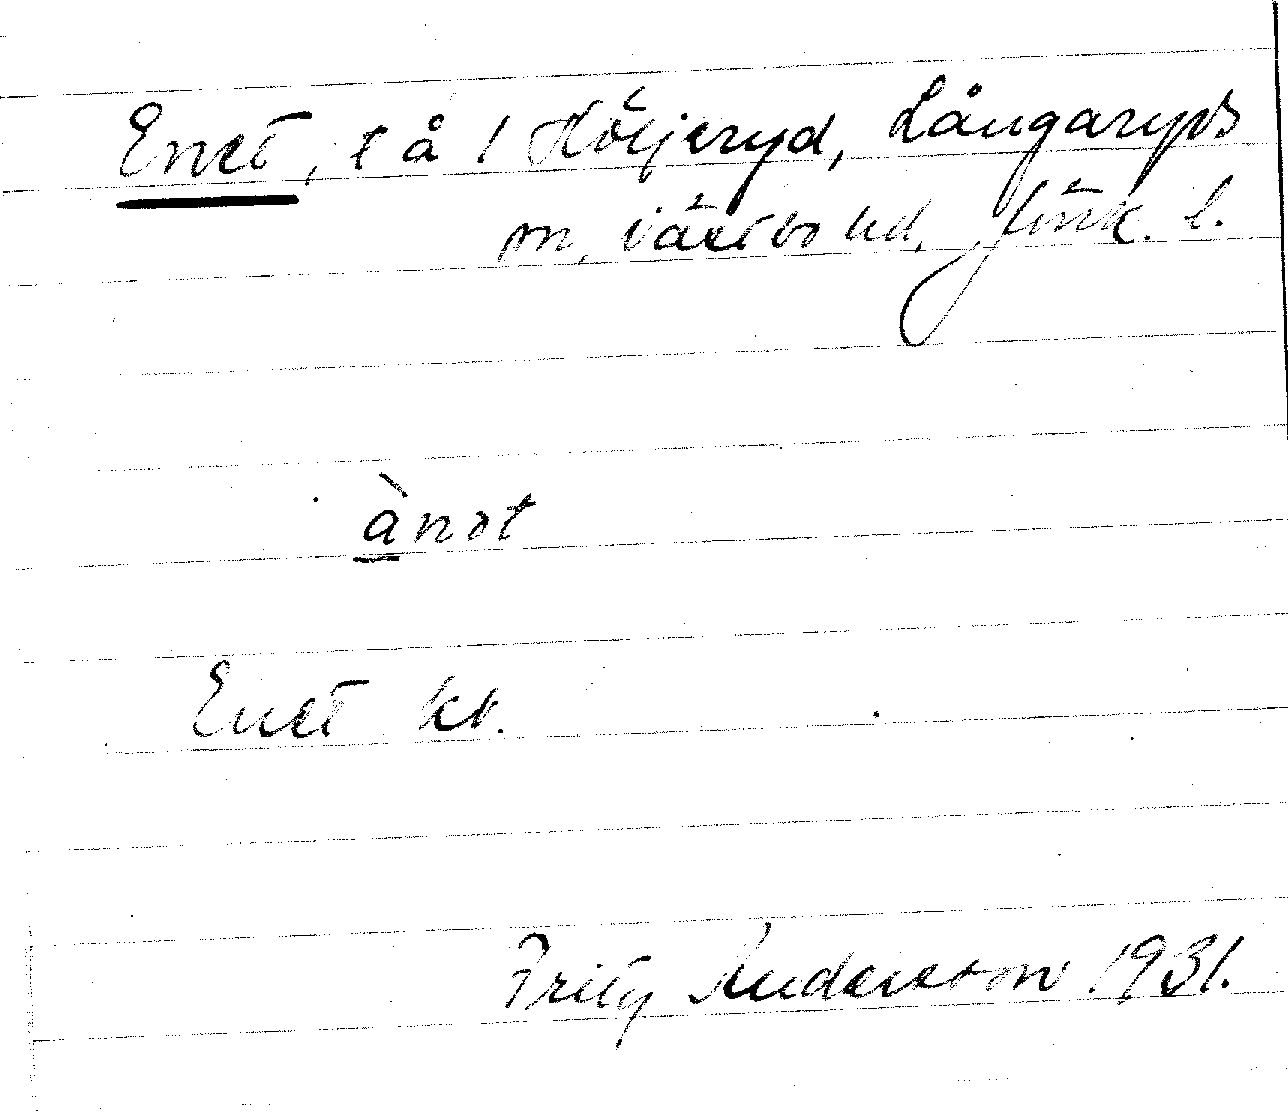 Enet, l å i Höljeryd, Långaryds
sn, Västbo hd, Jönk. l.
ànət
Enet kt.
Fritz Andersson 1931.